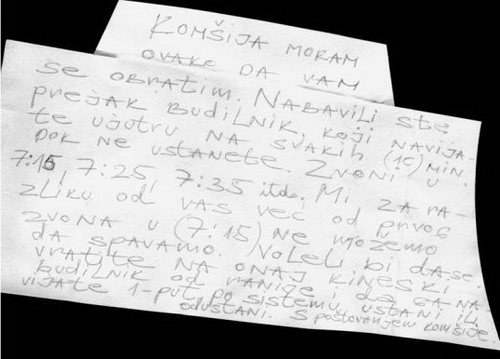 KOMŠIJA MORAM
OVAKO DA VAM
se OBRATIM. NABAVILI STE
PREJAK BUDILNIK, KOJI NAVIJA-
te ujutru NA SVAKIH (10) MIN.
DOK NE USTANETE. ZVONI U
7:15, 7:25, 7:35 itd. Mi, ZA RA-
ZLIKU OD VAS VEĆ OD PRVOG
ZVONA U (7:15) NE MOŽEMO
DA SPAVAMO. VOLELI BI DA SE
VRATITE NA ONAJ KINESKI
BUDILNIK OD RANIJE DA GA NA-
VIJATE 1-PUT PO SISTEMU USTANI ILI
ODUSTANI. S POŠTOVANJEM KOMŠIJE.